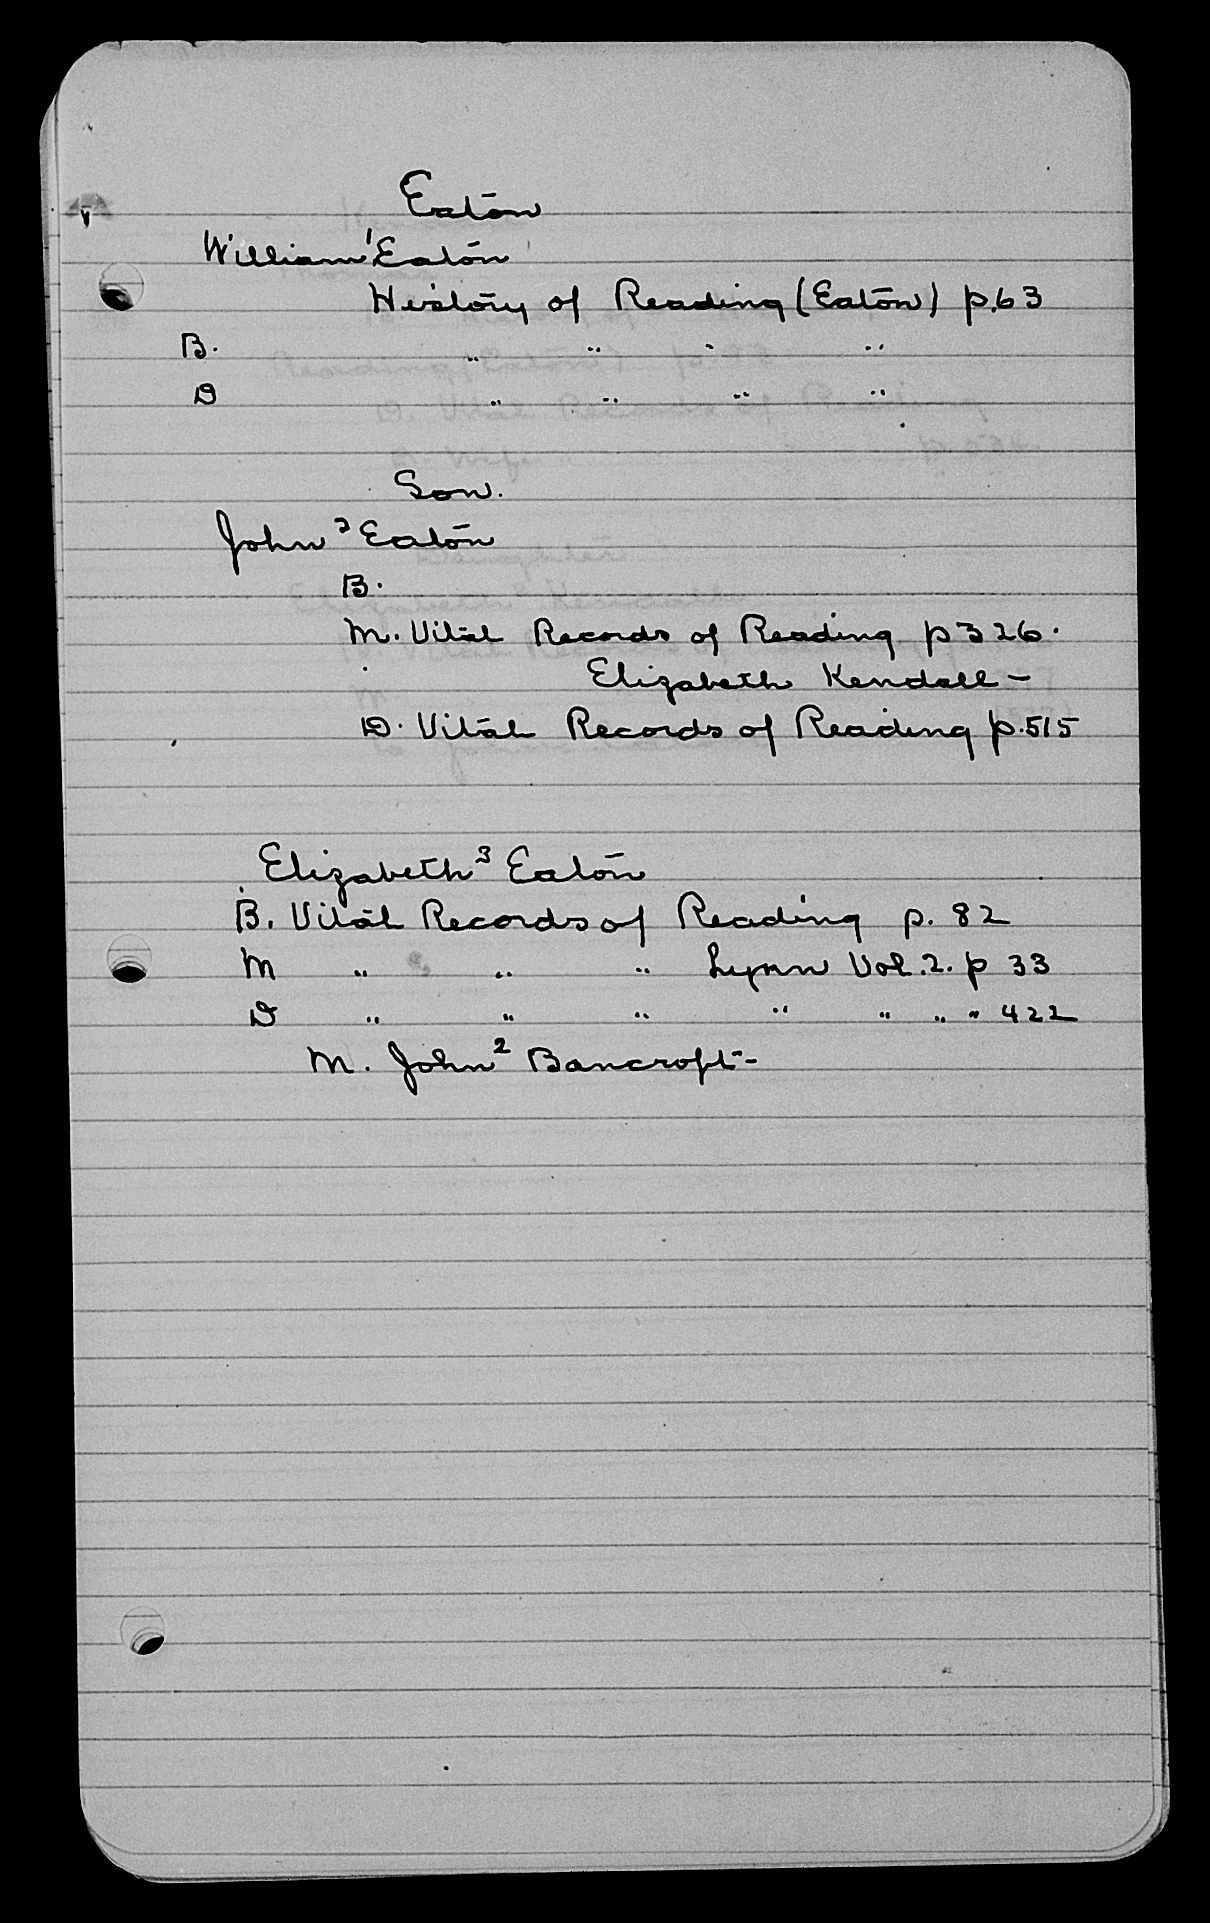 Eaton
William¹ Eaton
History of Reading (Eaton) p.63
B. " " " "
D " " " "
Son.
John² Eaton
B.
M. Vital Records of Reading p 326.
Elizabeth Kendall -
D. Vital Records of Reading p.515
Elizabeth³ Eaton
B. Vital Records of Reading p. 82
M " " " Lynn Vol. 2. p 33
D " " " " " " " 422
M. John² Bancroft -